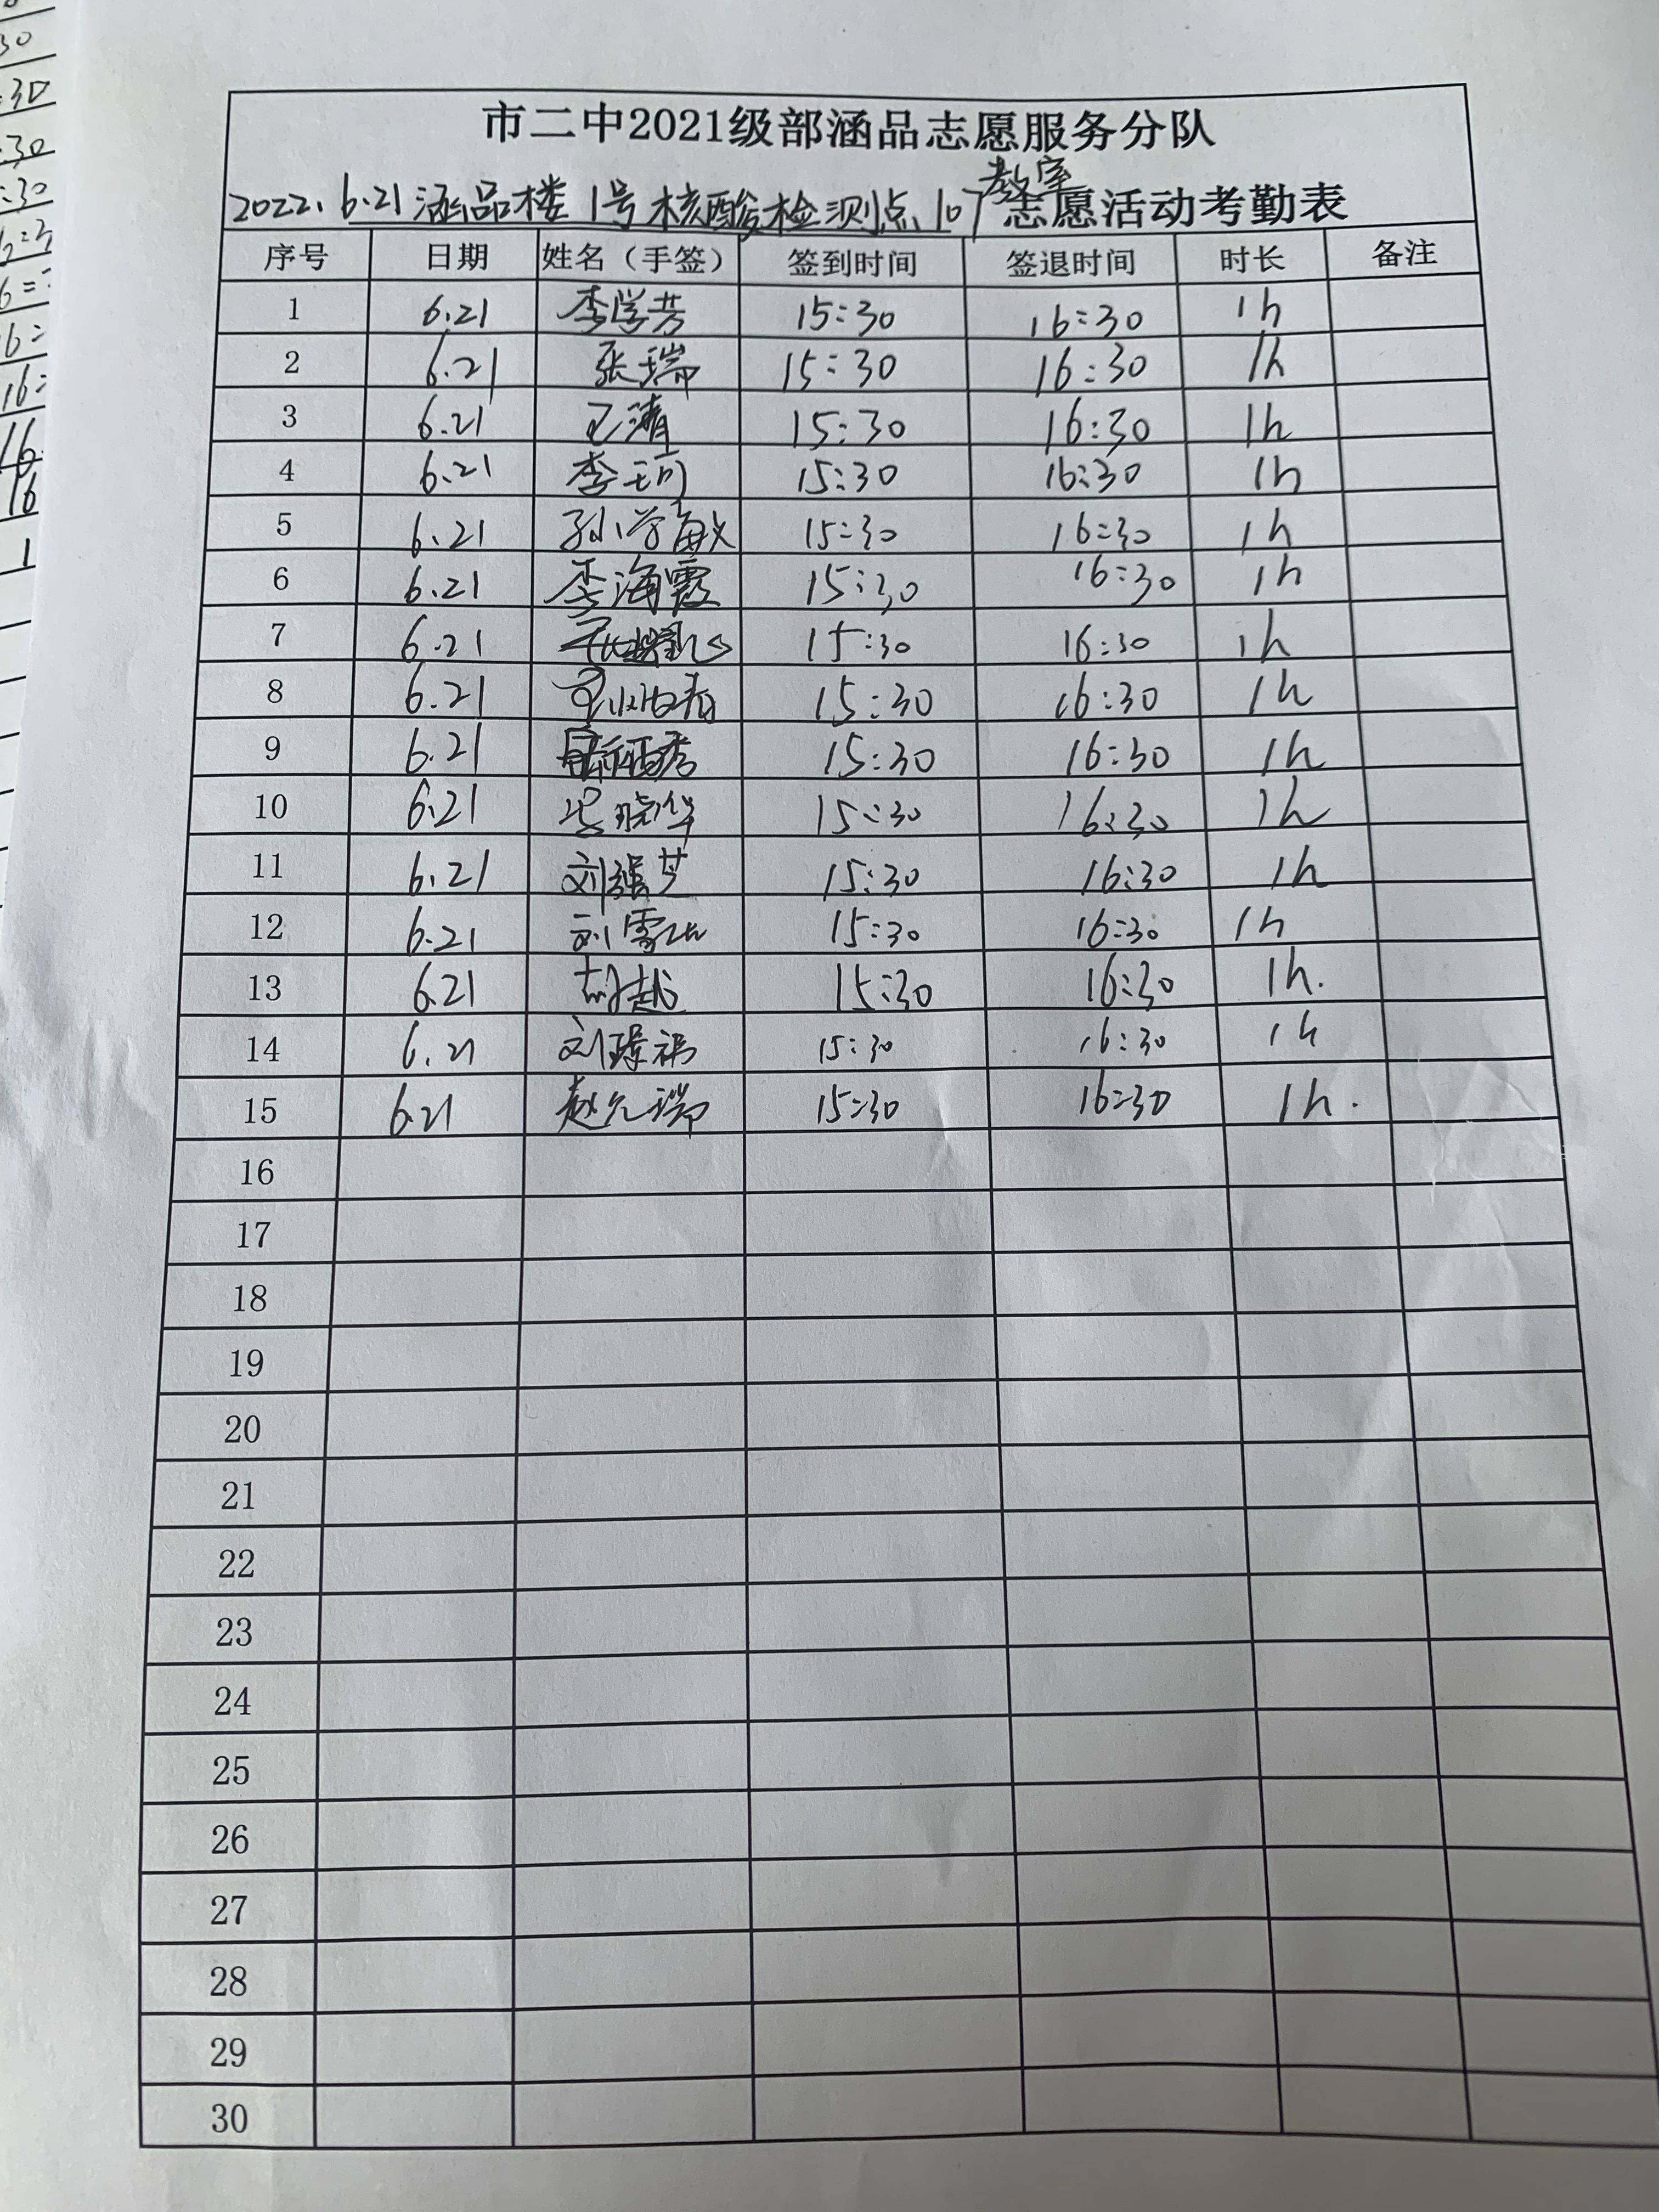 市二中2021级部涵品志愿服务分队
2022.6.21涵品楼1号核酸检测点107教室志愿活动考勤表
序号 日期 姓名（手签） 签到时间 签退时间 时长 备注
1 6.21 李学芳 15:30 16:30 1h
2 6.21 张瑞 15:30 16:30 1h
3 6.21 15:30 16:30 1h
4 6.21 李珂 15:30 16:30 1h
5 6.21 孙学敏 15:30 16:30 1h
6 6.21 李海霞 15:30 16:30 1h
7 6.21 15:30 16:30 1h
8 6.21 15:30 16:30 1h
9 6.21 15:30 16:30 1h
10 6.21 15:30 16:30 1h
11 6.21 15:30 16:30 1h
12 6.21 15:30 16:30 1h
13 6.21 胡越 15:30 16:30 1h.
14 6.21 15:30 16:30 1h
15 6.21 赵允瑞 15:30 16:30 1h.
16
17
18
19
20
21
22
23
24
25
26
27
28
29
30